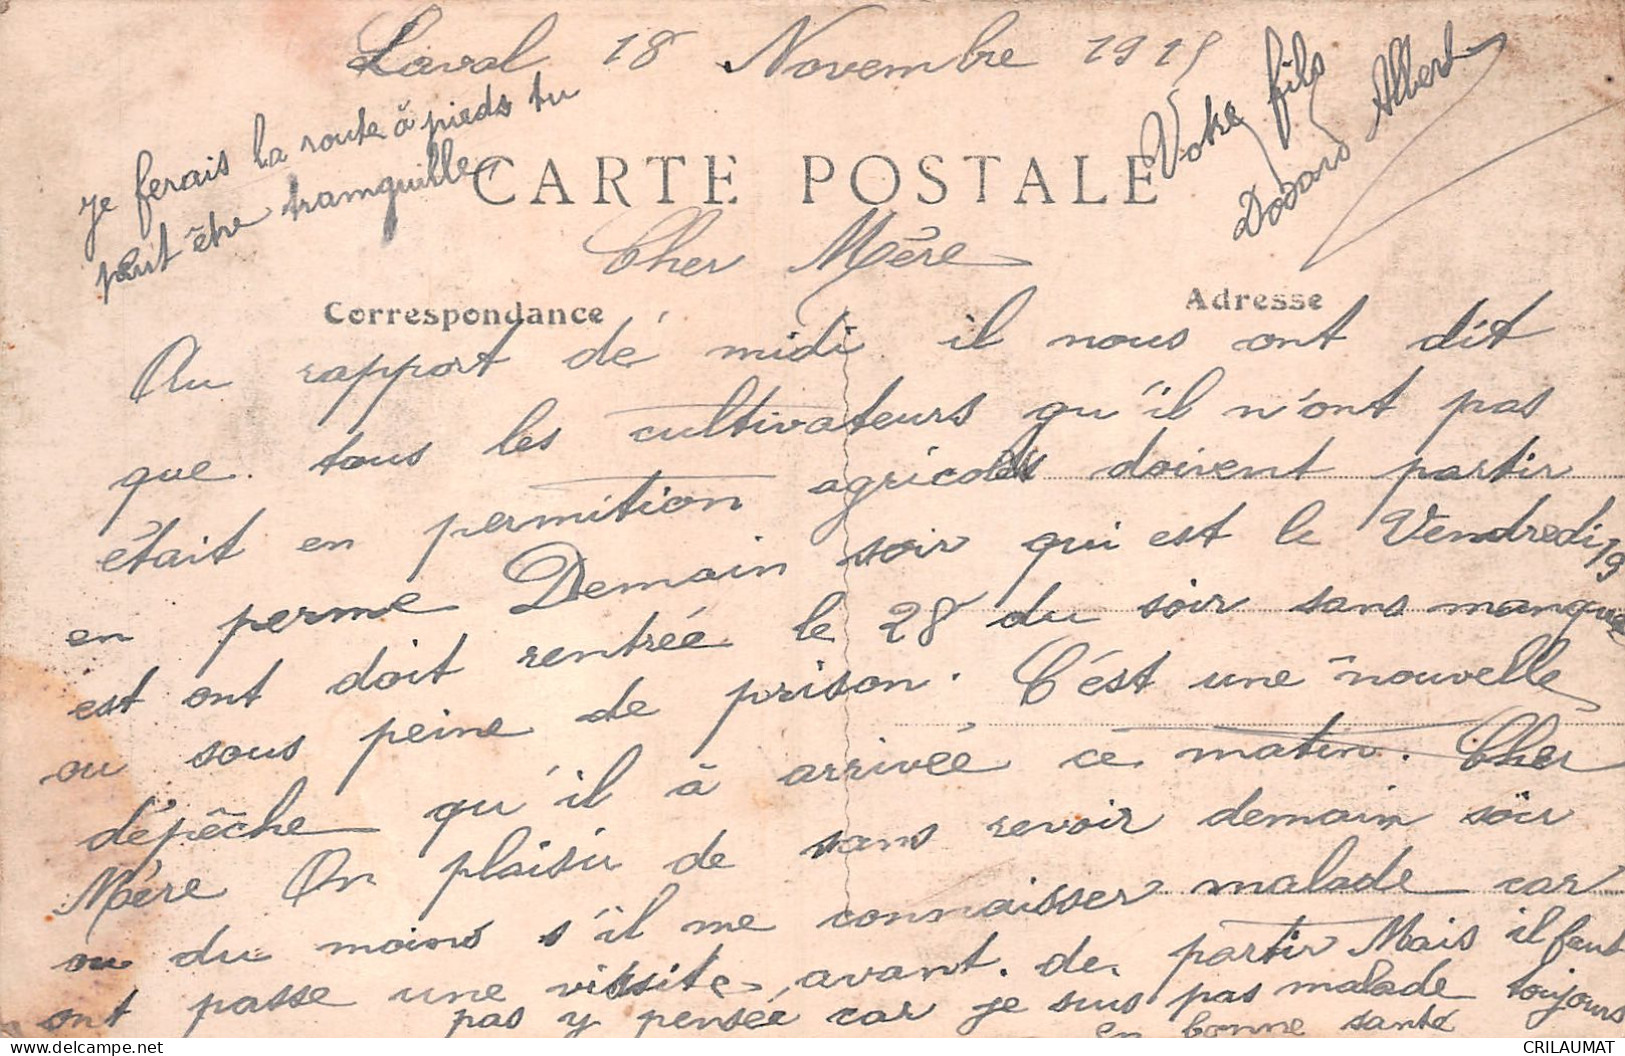 Laval 18 Novembre 1915
je ferais la route à pieds tu
peut être tranquille
Votre fils
Dodard Albert
CARTE POSTALE
Cher Mère
Correspondance
Adresse
Au rapport dé midi il nous ont dit
que tous les cultivateurs qu'il n'ont pas
était en permition agricoles doivent partir
en perme Demain soir qui est le Vendredi 19
est ont doit rentrée le 28 du soir sans manque
ou sous peine de prison. C'est une nouvelle
dépêche qu'il à arrivée ce matin. Cher
Mère On plaisir de sans revoir demain soir
ou du moins s'il me connaisser malade car
ont passe une vissite avant. de partir Mais il faut
pas y pensée car je suis pas malade toujours
en bonne santé
CRILAUMAT